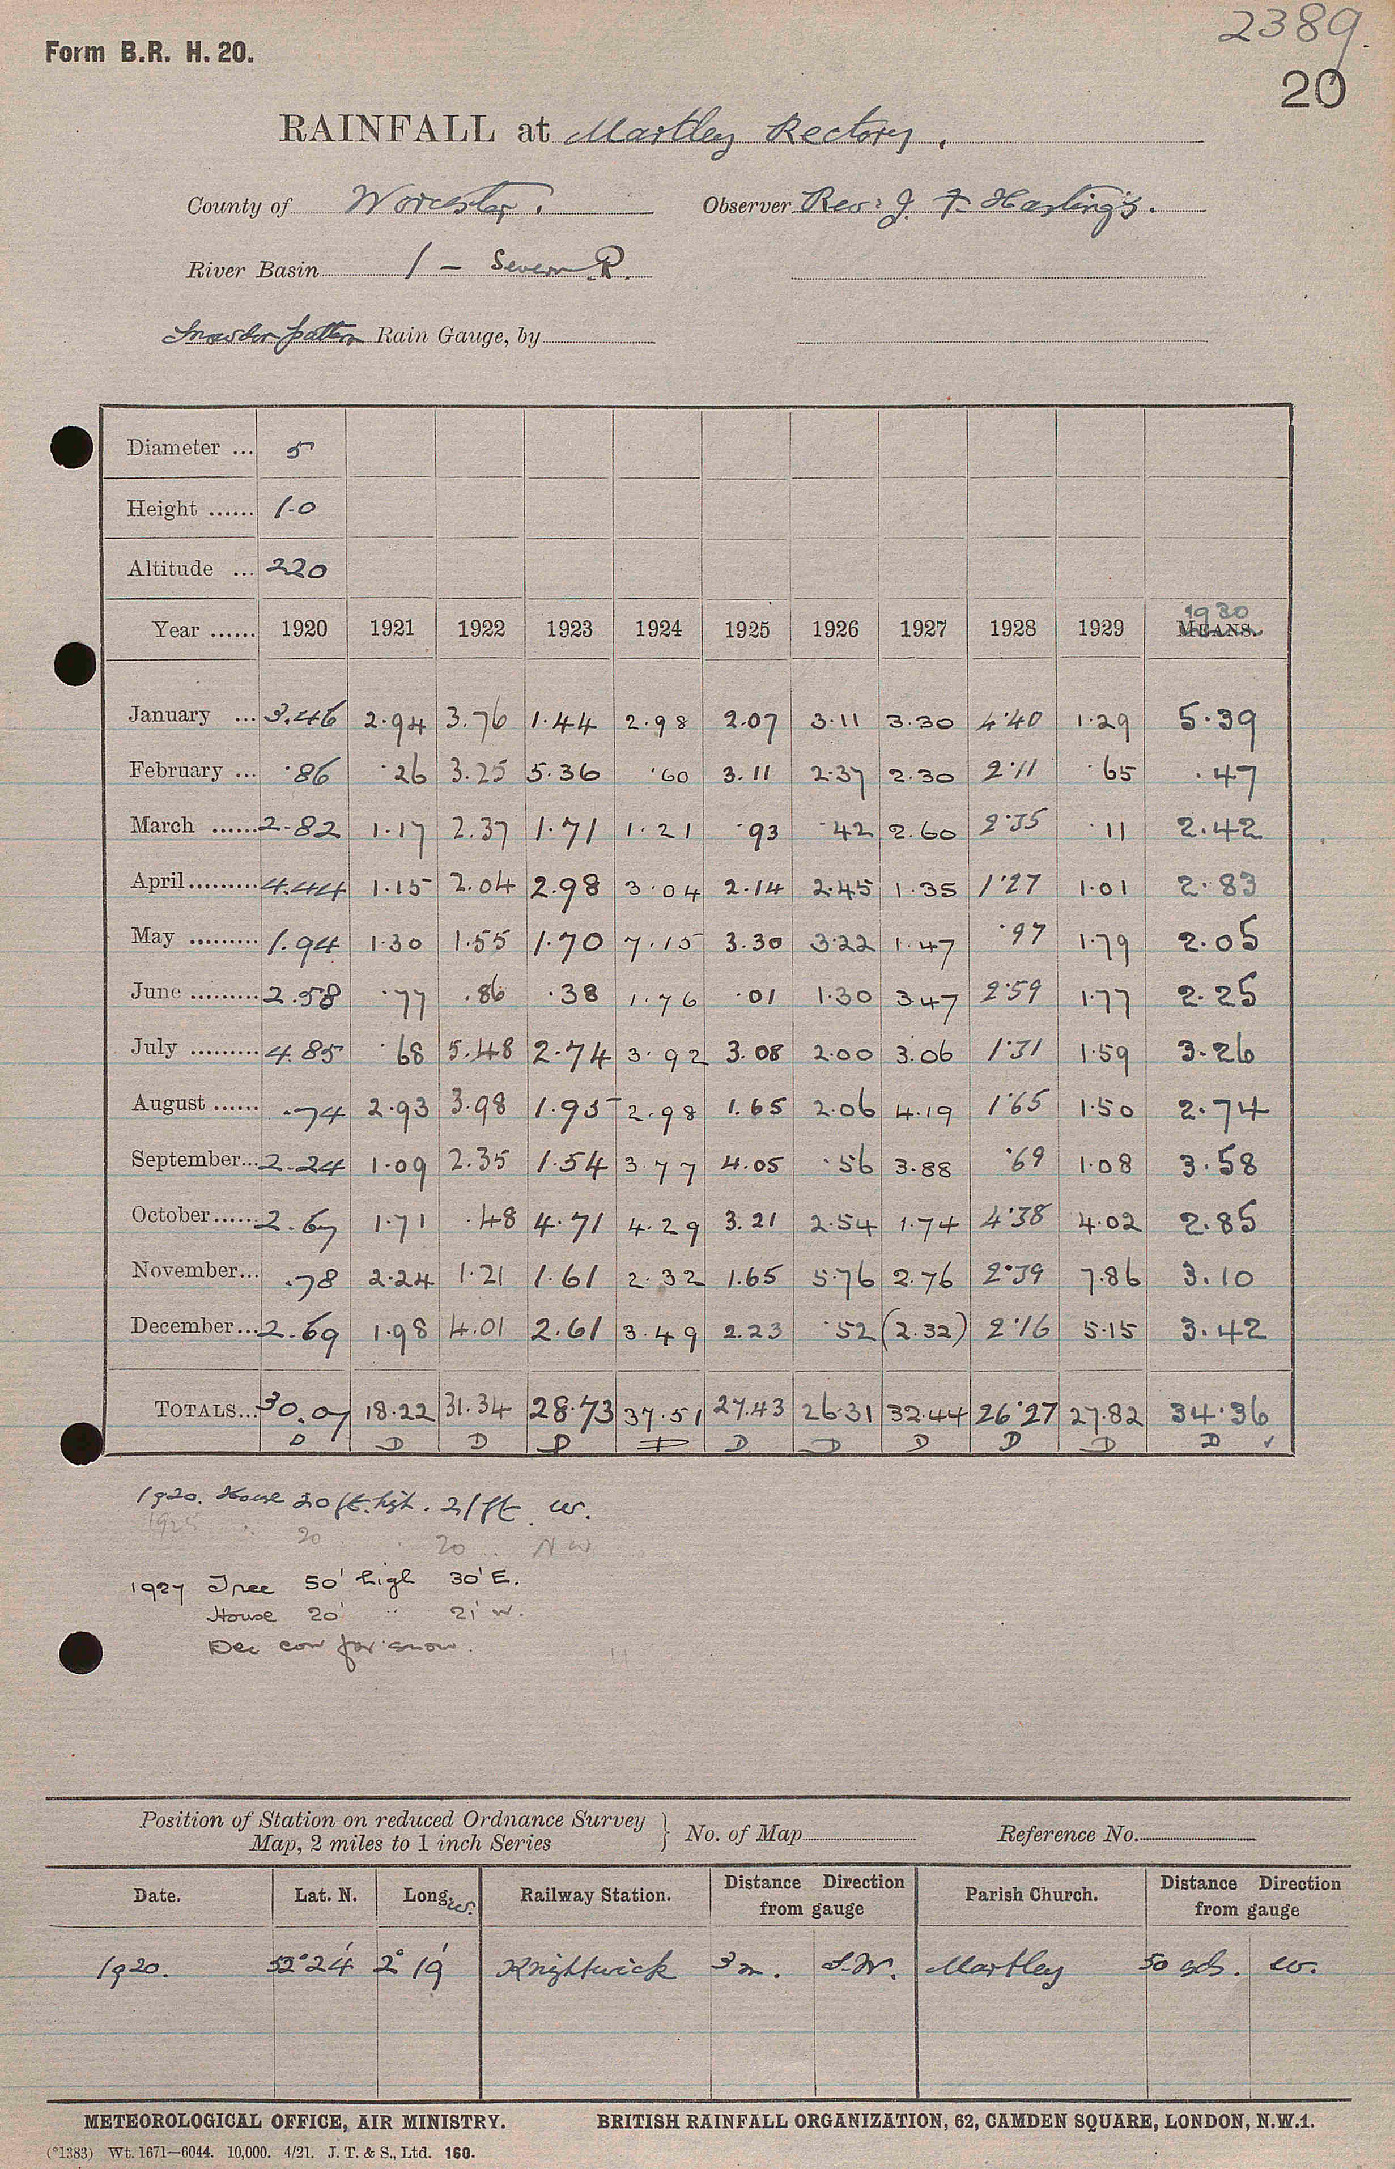 2389.
Form B.R. H. 20.
20
RAINFALL at Martley Rectory.
County of Worcester. Observer Rev: J. F. Hastings.
River Basin 1 - Severn R.
Snowdon pattern Rain Gauge, by
Diameter ... 5
Height ...... 1-0
Altitude ... 220
1930
Year ...... 1920 1921 1922 1923 1924 1925 1926 1927 1928 1929 MEANS.
January ... 3.46 2.94 3.76 1.44 2.98 2.07 3.11 3.30 4.40 1.29 5.39
February ... .86 .26 3.25 5.36 .60 3.11 2.37 2.30 2.11 .65 .47
March ...... 2.82 1.17 2.37 1.71 1.21 .93 .42 2.60 2.35 .11 2.42
April ......... 4.44 1.15 2.04 2.98 3.04 2.14 2.45 1.35 1.27 1.01 2.83
May ......... 1.94 1.30 1.55 1.70 7.15 3.30 3.22 1.47 .97 1.79 2.05
June ......... 2.58 .77 .86 .38 1.76 .01 1.30 3.47 2.59 1.77 2.25
July ......... 4.85 .68 5.48 2.74 3.92 3.08 2.00 3.06 1.31 1.59 3.26
August ...... .74 2.93 3.98 1.95 2.98 1.65 2.06 4.19 1.65 1.50 2.74
September... 2.24 1.09 2.35 1.54 3.77 4.05 .56 3.88 .69 1.08 3.58
October ...... 2.67 1.71 .48 4.71 4.29 3.21 2.54 1.74 4.38 4.02 2.85
November... .78 2.24 1.21 1.61 2.32 1.65 5.76 2.76 2.39 7.86 3.10
December... 2.69 1.98 4.01 2.61 3.49 2.23 .52 (2.32) 2.16 5.15 3.42
TOTALS... 30.07 18.22 31.34 28.73 37.51 27.43 26.31 32.44 26.27 27.82 34.36
D D D D D D D D D D D ✓
1920. House 20 ft. high. 21 ft. W.
1925 " 20 " 20 " NW
1927 Tree 50' high 30' E.
House 20' " 21' W.
Dec corr for snow.
Position of Station on reduced Ordnance Survey
Map, 2 miles to 1 inch Series } No. of Map Reference No.
Date. Lat. N. Long. W. Railway Station. Distance Direction from gauge Parish Church. Distance Direction from gauge
1920. 52° 24' 2° 19' Knightwick 3 m. S.W. Martley 50 yds. W.
METEOROLOGICAL OFFICE, AIR MINISTRY. BRITISH RAINFALL ORGANIZATION, 62, CAMDEN SQUARE, LONDON, N.W.1.
(*1383) Wt. 1671—6044. 10,000. 4/21. J. T. & S., Ltd. 160.